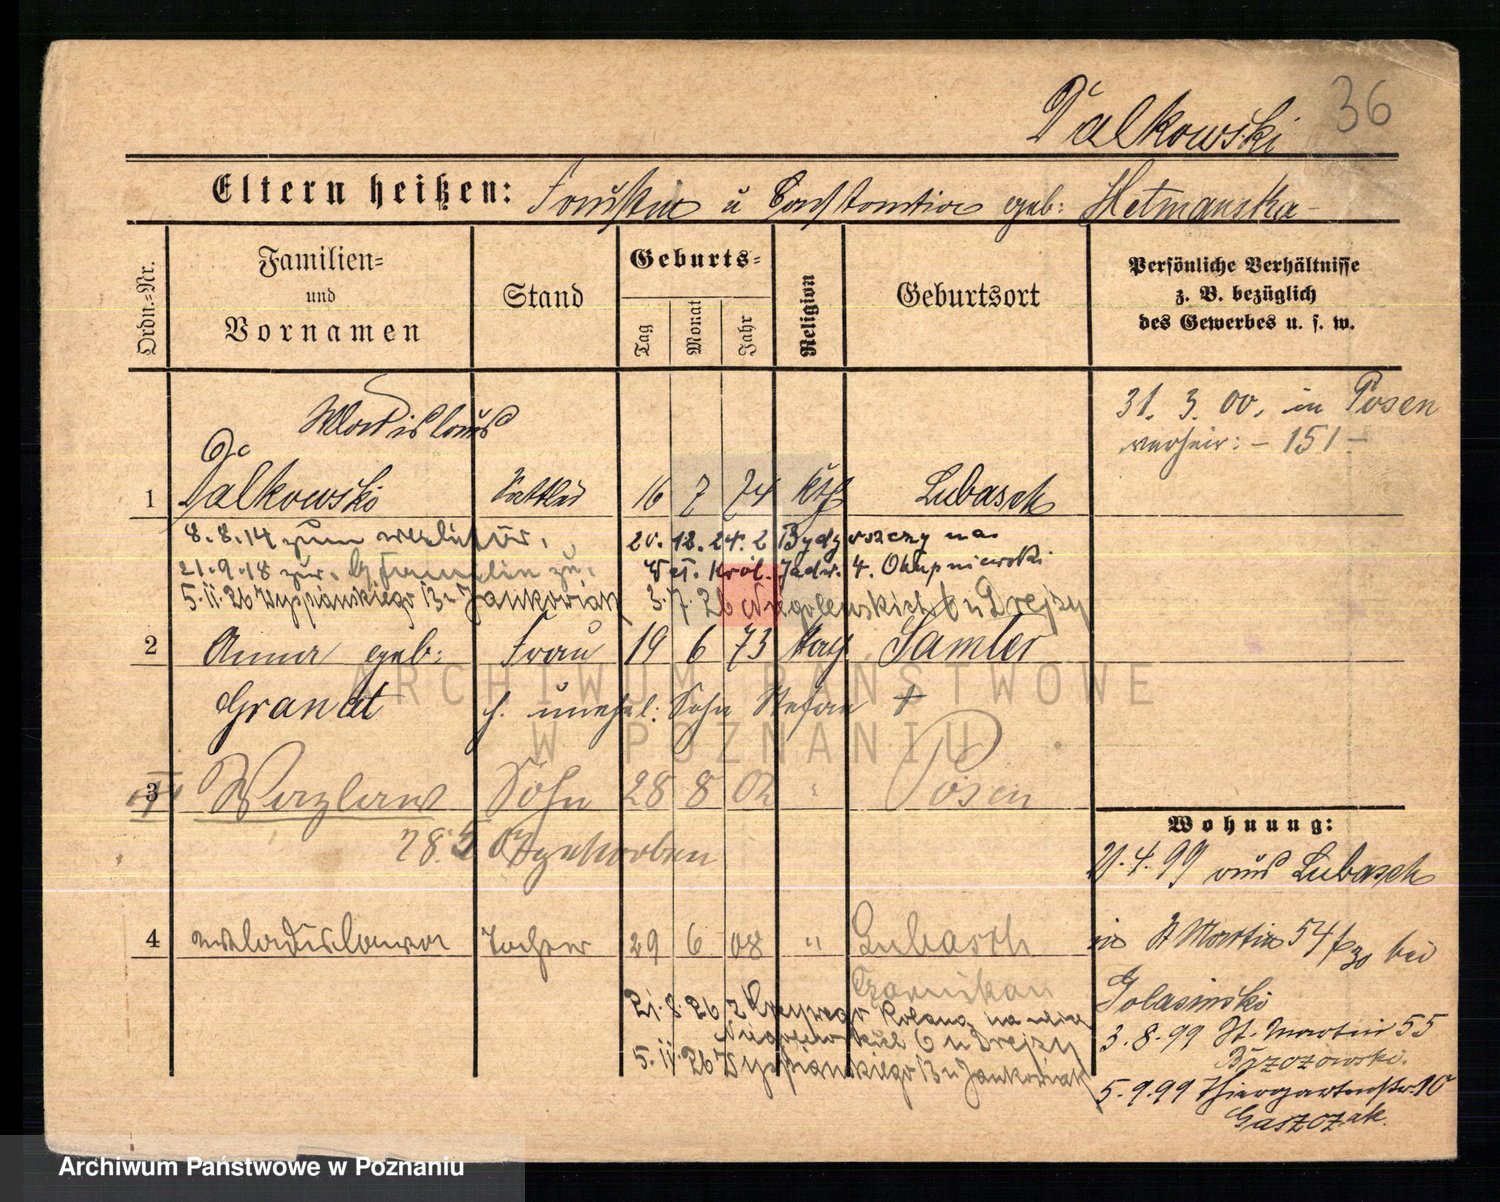 36
Dalkowski
Eltern heißen: Faustin u Constantia geb: Hetmanska
Ordn.=Nr.
Familien=
und
Vornamen
Stand
Geburts=
Tag
Monat
Jahr
Religion
Geburtsort
Persönliche Verhältnisse
z. B. bezüglich
des Gewerbes u. s. w.
31. 3. 00, in Posen
verheir: - 151 -
Wladislaus
1 Dalkowski Sattler 16 7 74 kth Lubasch
8.8.14 zum
20.12.24. z Bydgoszczy na
21.9.18 zur.
Wat. Król. Jadw. 4.
5.11.26 Wyspianskiego 13 u Jankowiak 3.7.26 Niegolewskich 6 u Drejzy
2 Anna geb: Frau 19 6 73 kath Samter
Grandt h. unehel: Sohn Stefan +
3 Wazlaw Sohn 28 8 02 Posen
28.5 gestorben
Wohnung:
21.4.99 aus Lubasch
4 Wladislawa Tochter 29 6 08 " Lubasch
in St Martin 54 bei
Czarnikau
Golasinski
21.8.26 z
Niegolewskich 6 u Drejzy
3.8.99 St. Martin 55
Brzozowski.
5.11.26 Wyspianskiego 13 u Jankowiak
5.9.99 Thiergartenstr. 10
Gaszczak.
ARCHIWUM PAŃSTWOWE
W POZNANIU
Archiwum Państwowe w Poznaniu